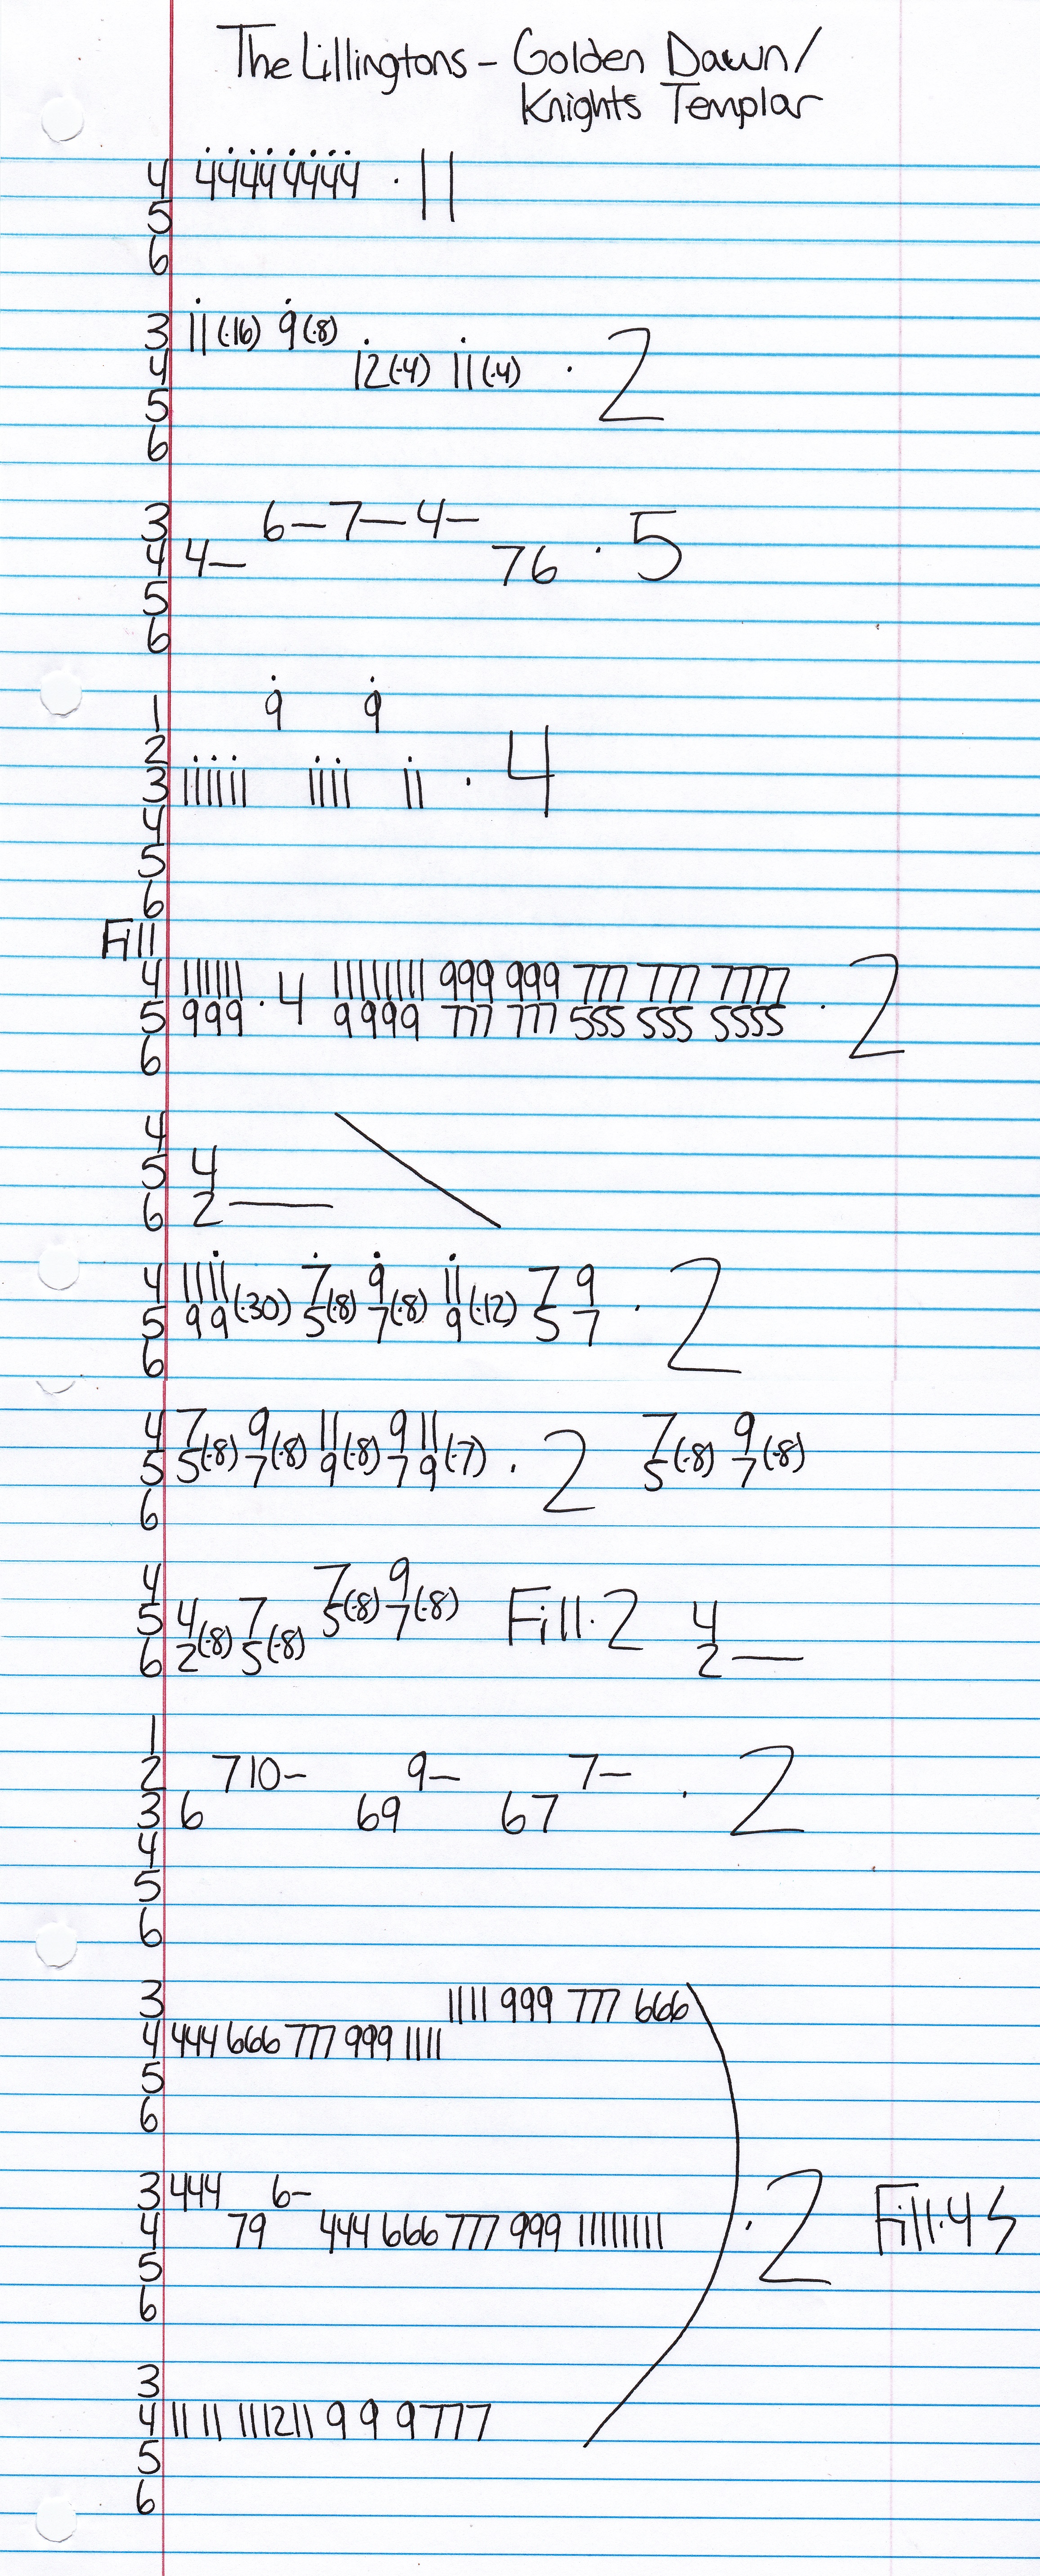 The Lillingtons - Golden Dawn/
Knights Templar
4 44444444 · 11
5
6
3 11(·16) 9(·8)
4 12(·4) 11(·4) · 2
5
6
3 6-7-4-
4 4- 76 · 5
5
6
1 9 9
2
3 111111 1111 11 · 4
4
5
6
Fill
4 111111 · 4 11111111 999 999 777 777 7777
5 999 9999 777 777 555 555 5555 · 2
6
4
5 4
6 2—
4 1111(·30) 7(·8) 9(·8) 11(·12) 7 9
5 99 5 7 9 5 7 · 2
6
4 7(·8) 9(·8) 11(·8) 9 11(·7)  7(·8) 9(·8)
5 5 7 9 7 9 · 2 5 7
6
4 7(·8) 9(·8)
5 4(·8) 7(·8) 5 7 Fill·2 4
6 2 5 2—
1
2 710- 9- 7- · 2
3 6 69 67
4
5
6
3 1111 999 777 666
4 444 666 777 999 1111
5
6
3 444 6-
4 79 444 666 777 999 11111111 · 2 Fill·4
5
6
3
4 11 11 111211 9 9 9777
5
6